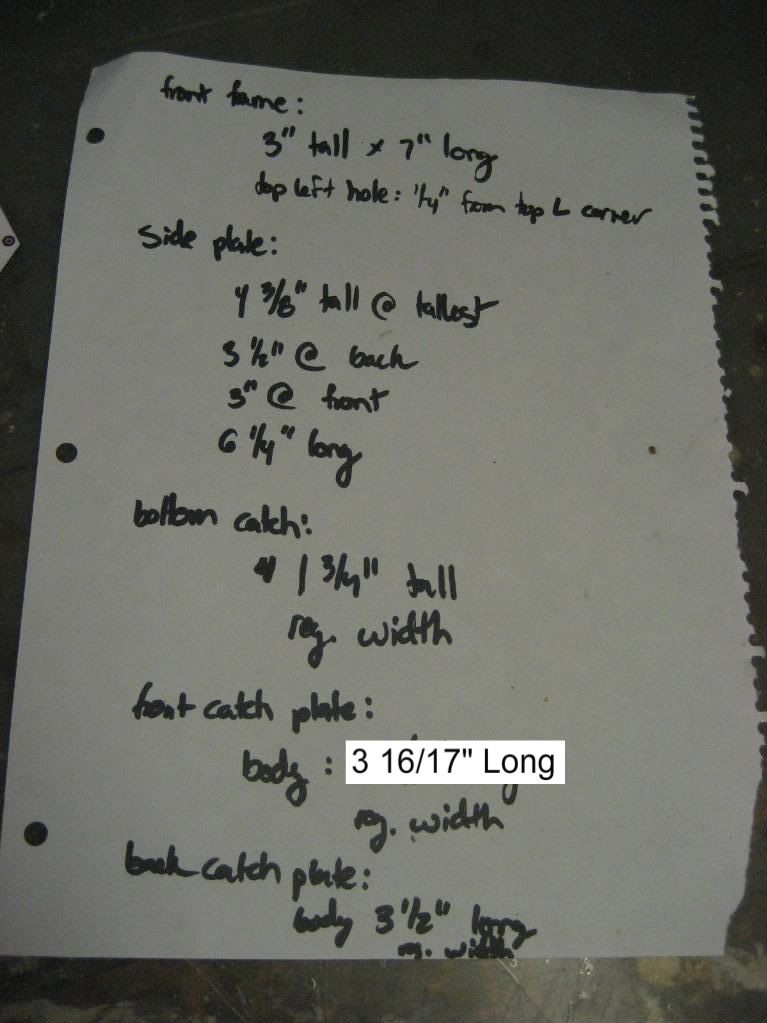 front frame:
3" tall x 7" long
top left hole: 1/4" from top L corner
Side plate:
4 3/8" tall @ tallest
3 1/2" @ back
3" @ front
6 1/4" long
bottom catch:
1 3/4" tall
reg. width
front catch plate:
body : 3 16/17" Long
reg. width
back catch plate:
body 3 1/2" long
reg. width